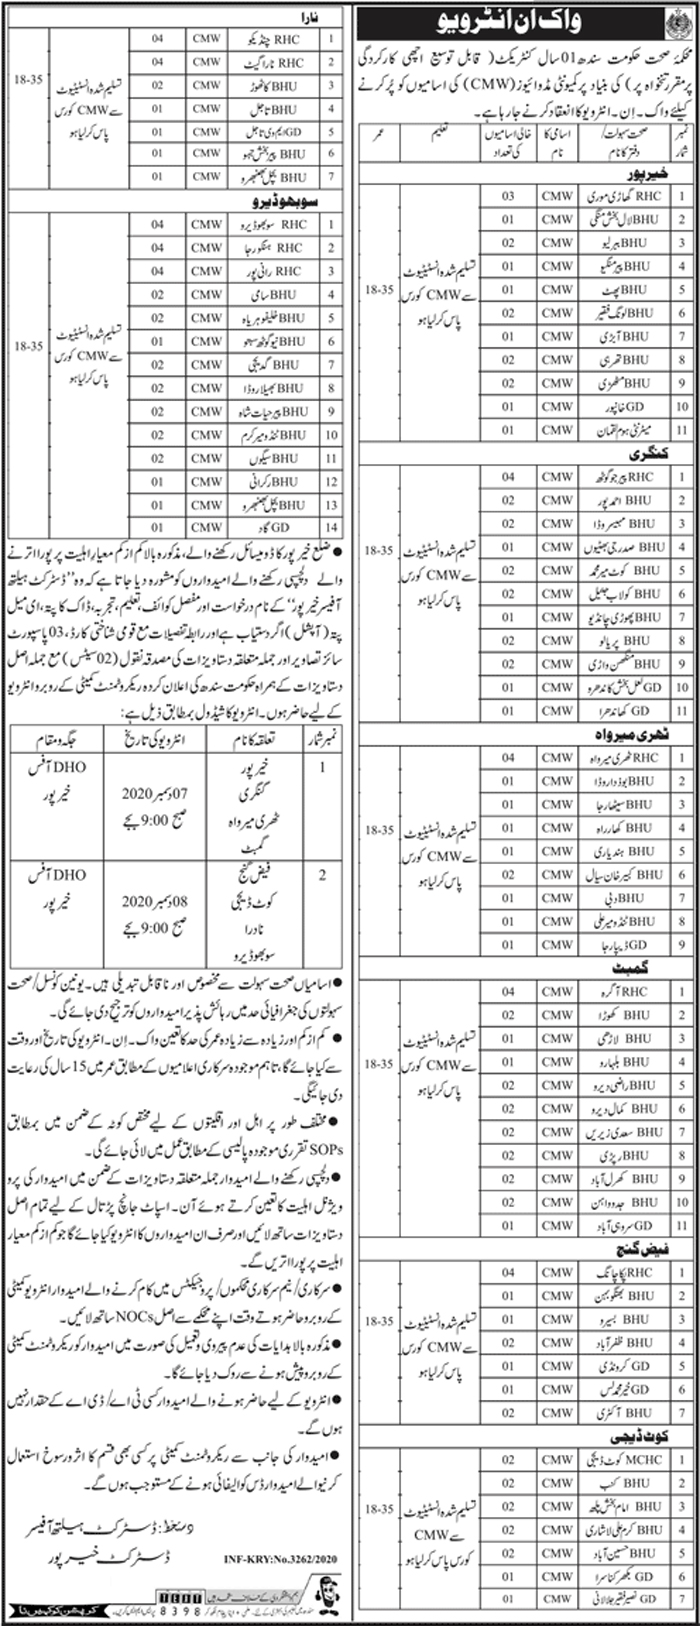 واک ان انٹرویو
محکمۂ صحت حکومت سندھ 01 سال کنٹریکٹ (قابل توسیع اچھی کارکردگی
پر مقرر تنخواہ پر) کی بنیاد پر کمیونٹی مڈوائیوز (CMW) کی اسامیوں کو پُر کرنے
کیلئے واک۔ اِن۔ انٹرویو کا انعقاد کرنے جا رہا ہے۔
نمبر شمار صحت سہولت/ دفتر کا نام اسامی کا نام خالی اسامیوں کی تعداد تعلیم عمر
خیرپور
1 RHC گھاڑی موری CMW 03
2 BHU لال بخش منگی CMW 01
3 BHU ببرلیو CMW 02
4 BHU پیر منگیو CMW 01
5 BHU پھٹ CMW 01
6 BHU لونگ فقیر CMW 02
7 BHU آبڑی CMW 01
8 BHU تھرہی CMW 02
9 BHU مٹھڑی CMW 02
10 GD خانپور CMW 01
11 میٹرنٹی ہوم لقمان CMW 01
تسلیم شدہ انسٹیٹیوٹ سے CMW کورس پاس کرلیا ہو
18-35
کنگری
1 RHC پیر جو گوٹھ CMW 04
2 BHU احمد پور CMW 02
3 BHU مہیسر وڈا CMW 02
4 BHU صدر جی بھٹیوں CMW 01
5 BHU کوٹ میر محمد CMW 02
6 BHU کولاب جیل CMW 02
7 BHU پھوڑی چانڈیو CMW 01
8 BHU پریالو CMW 02
9 BHU منگھن واڑی CMW 02
10 GD لعل بخش کاندھرہ CMW 01
11 GD کھاندھرا CMW 01
تسلیم شدہ انسٹیٹیوٹ سے CMW کورس پاس کرلیا ہو
18-35
ٹھری میرواہ
1 RHC ٹھری میرواہ CMW 04
2 BHU بوڈدار وڈا CMW 01
3 BHU سیٹھارجا CMW 01
4 BHU کھارراہ CMW 01
5 BHU ہندیاری CMW 01
6 BHU کبیر خان سیال CMW 02
7 BHU دبی CMW 01
8 BHU ٹنڈو میر علی CMW 01
9 GD ڈیپارجا CMW 01
تسلیم شدہ انسٹیٹیوٹ سے CMW کورس پاس کرلیا ہو
18-35
گمبٹ
1 RHC آگرہ CMW 04
2 BHU کھوڑا CMW 02
3 BHU لاڑھی CMW 01
4 BHU بلہارو CMW 01
5 BHU راضی دیرو CMW 02
6 BHU کمال دیرو CMW 02
7 BHU سعدی زیریں CMW 02
8 BHU رپڑی CMW 02
9 BHU کھرل آباد CMW 02
10 BHU جدو واہن CMW 02
11 GD سروہی آباد CMW 01
تسلیم شدہ انسٹیٹیوٹ سے CMW کورس پاس کرلیا ہو
18-35
فیض گنج
1 RHC پکا چانگ CMW 04
2 BHU بھنگو بہن CMW 01
3 BHU بسیرو CMW 01
4 BHU ظفر آباد CMW 02
5 GD کرونڈی CMW 01
6 GD خیر محمد لس CMW 01
7 BHU آکڑی CMW 02
تسلیم شدہ انسٹیٹیوٹ سے CMW کورس پاس کرلیا ہو
18-35
کوٹ ڈیجی
1 MCHC کوٹ ڈیجی CMW 02
2 BHU کنب CMW 02
3 BHU امام بخش پلھ CMW 02
4 BHU کرم علی لاشاری CMW 02
5 BHU حسین آباد CMW 02
6 GD بگھر کناسرا CMW 01
7 GD نصیر فقیر جلالانی CMW 02
تسلیم شدہ انسٹیٹیوٹ سے CMW کورس پاس کرلیا ہو
18-35
نارا
1 RHC چنڈیکو CMW 04
2 RHC نارا گیٹ CMW 04
3 BHU کاٹھوڑ CMW 02
4 BHU تاجل CMW 01
5 GD ایم وی تاجل CMW 01
6 BHU پیر بخش جہو CMW 01
7 BHU بچل بھنبھرو CMW 01
تسلیم شدہ انسٹیٹیوٹ سے CMW کورس پاس کرلیا ہو
18-35
سوبھوڈیرو
1 RHC سوبھوڈیرو CMW 04
2 RHC ہنگورجا CMW 04
3 RHC رانی پور CMW 04
4 BHU سامی CMW 02
5 BHU خلیفو ہریاہ CMW 02
6 BHU نیو گوٹھ سہو CMW 01
7 BHU گدیجی CMW 02
8 BHU بھیلار وڈا CMW 02
9 BHU پیر حیات شاہ CMW 02
10 BHU ٹنڈو میر کرم CMW 02
11 BHU سیگوں CMW 02
12 BHU رکرانی CMW 01
13 BHU بچل بھنبھرو CMW 01
14 GD گاد CMW 01
تسلیم شدہ انسٹیٹیوٹ سے CMW کورس پاس کرلیا ہو
18-35
● ضلع خیرپور کا ڈومیسائل رکھنے والے، مذکورہ بالا کم از کم معیار اہلیت پر پورا اترنے
والے دلچسپی رکھنے والے امیدواروں کو مشورہ دیا جاتا ہے کہ وہ "ڈسٹرکٹ ہیلتھ
آفیسر خیرپور" کے نام درخواست اور مفصل کوائف، تعلیم، تجربہ، ڈاک کا پتہ، ای میل
پتہ (آپشنل) اگر دستیاب ہے اور رابطہ تفصیلات مع قومی شناختی کارڈ، 03 پاسپورٹ
سائز تصاویر اور جملہ متعلقہ دستاویزات کی مصدقہ نقول (02 سیٹس) مع جملہ اصل
دستاویزات کے ہمراہ حکومت سندھ کی اعلان کردہ ریکروٹمنٹ کمیٹی کے روبرو انٹرویو
کے لیے حاضر ہوں۔ انٹرویو کا شیڈول بمطابق ذیل ہے:
نمبر شمار تعلقہ کا نام انٹرویو کی تاریخ جگہ و مقام
1 خیرپور کنگری ٹھری میرواہ گمبٹ 07 دسمبر 2020 صبح 9:00 بجے DHO آفس خیرپور
2 فیض گنج کوٹ ڈیجی نادرا سوبھوڈیرو 08 دسمبر 2020 صبح 9:00 بجے DHO آفس خیرپور
● اسامیاں صحت سہولت سے مخصوص اور ناقابل تبدیلی ہیں۔ یونین کونسل/صحت
سہولتوں کی جغرافیائی حد میں رہائش پذیر امیدواروں کو ترجیح دی جائے گی۔
● کم از کم اور زیادہ سے زیادہ عمر کی حد کا تعین واک۔ اِن۔ انٹرویو کی تاریخ اور وقت
سے کیا جائے گا، تاہم موجودہ سرکاری اعلامیوں کے مطابق عمر میں 15 سال کی رعایت
دی جائیگی۔
● مختلف طور پر اہل اور اقلیتوں کے لیے مختص کوٹہ کے ضمن میں بمطابق
SOPs تقرری موجودہ پالیسی کے مطابق عمل میں لائی جائے گی۔
● دلچسپی رکھنے والے امیدوار جملہ متعلقہ دستاویزات کے ضمن میں امیدوار کی پرو
ویژنل اہلیت کا تعین کرتے ہوئے آن۔ اسپاٹ جانچ پڑتال کے لیے تمام اصل
دستاویزات ساتھ لائیں اور صرف ان امیدواروں کا انٹرویو کیا جائے گا جو کم از کم معیار
اہلیت پر پورا اتریں گے۔
● سرکاری/نیم سرکاری محکموں/پروجیکٹس میں کام کرنے والے امیدوار انٹرویو کمیٹی
کے روبرو حاضر ہوتے وقت اپنے محکمے سے اصل NOCs ساتھ لائیں۔
● مذکورہ بالا ہدایات کی عدم پیروی و تعمیل کی صورت میں امیدوار کو ریکروٹمنٹ کمیٹی
کے روبرو پیش ہونے سے روک دیا جائے گا۔
● انٹرویو کے لیے حاضر ہونے والے امیدوار کسی ٹی اے/ڈی اے کے حقدار نہیں
ہوں گے۔
● امیدوار کی جانب سے ریکروٹمنٹ کمیٹی پر کسی بھی قسم کا اثر و رسوخ استعمال
کرنیوالے امیدوار ڈس کوالیفائی ہونے کے مستوجب ہوں گے۔
دستخط: ڈسٹرکٹ ہیلتھ آفیسر
ڈسٹرکٹ خیرپور
INF-KRY:No.3262/2020
8398
کرپشن کو کہیں نا